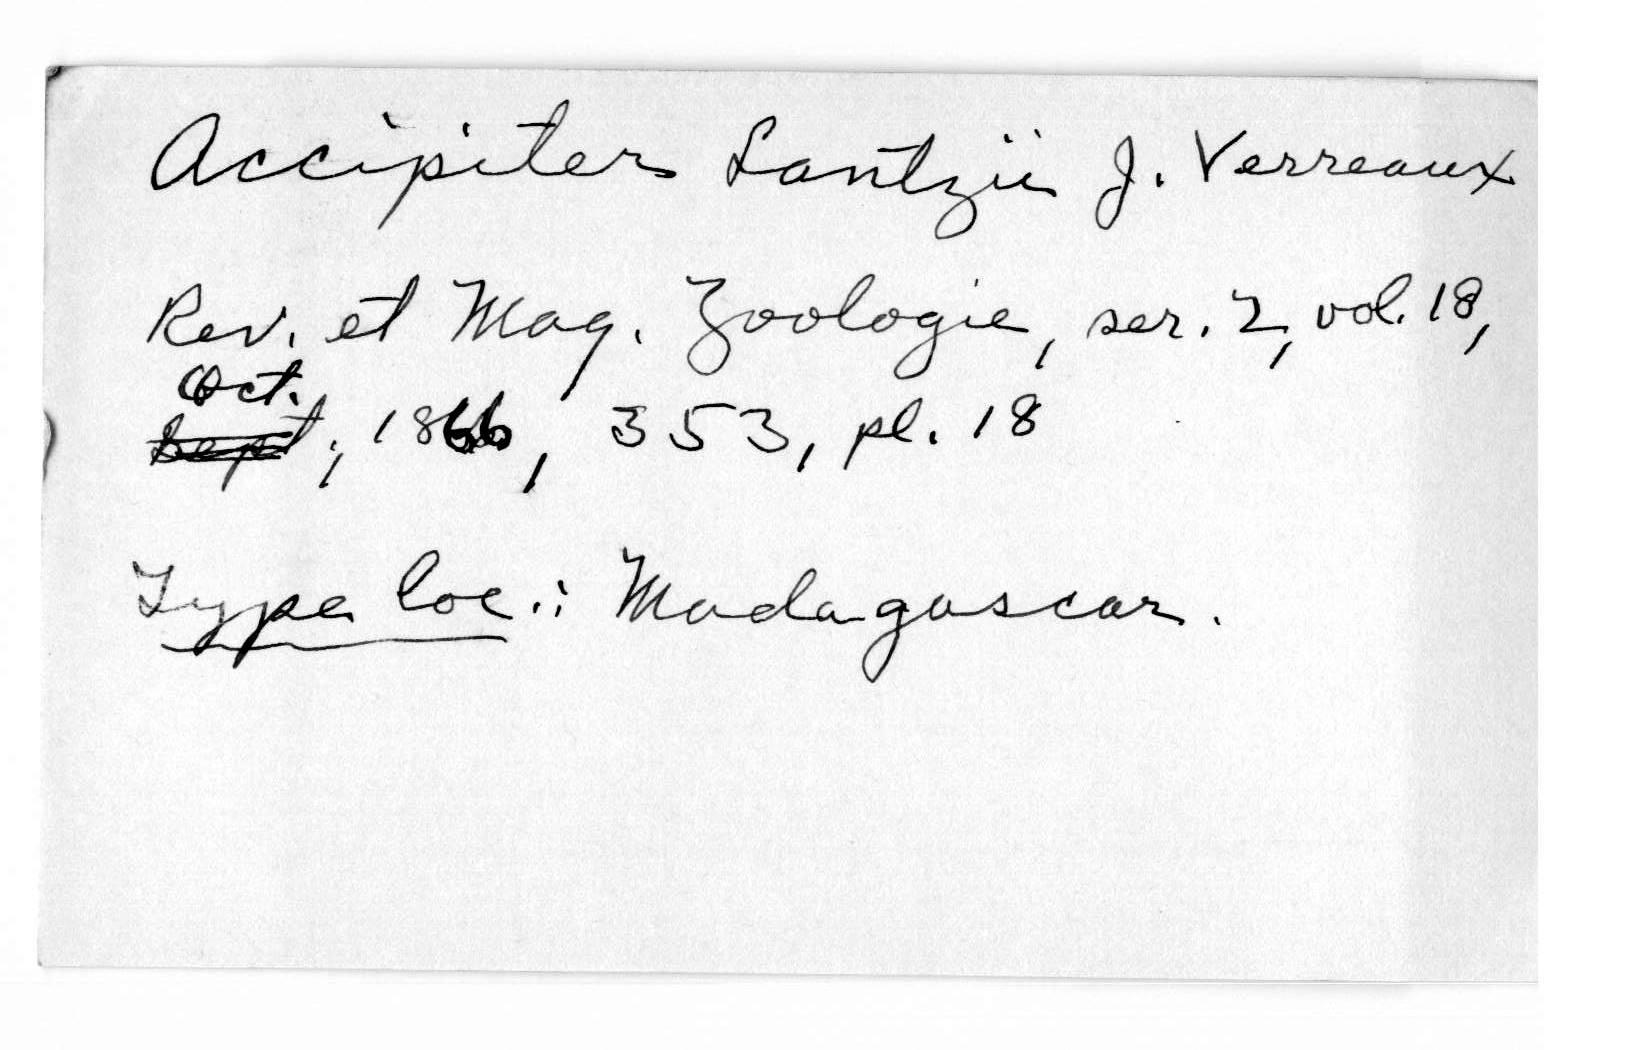 Accipiter Lantzii J. Verreaux
Rev. et Mag. Zoologie, ser. 2, vol. 18,
Oct.
Sept, 1866, 353, pl. 18
Type loc.: Madagascar.